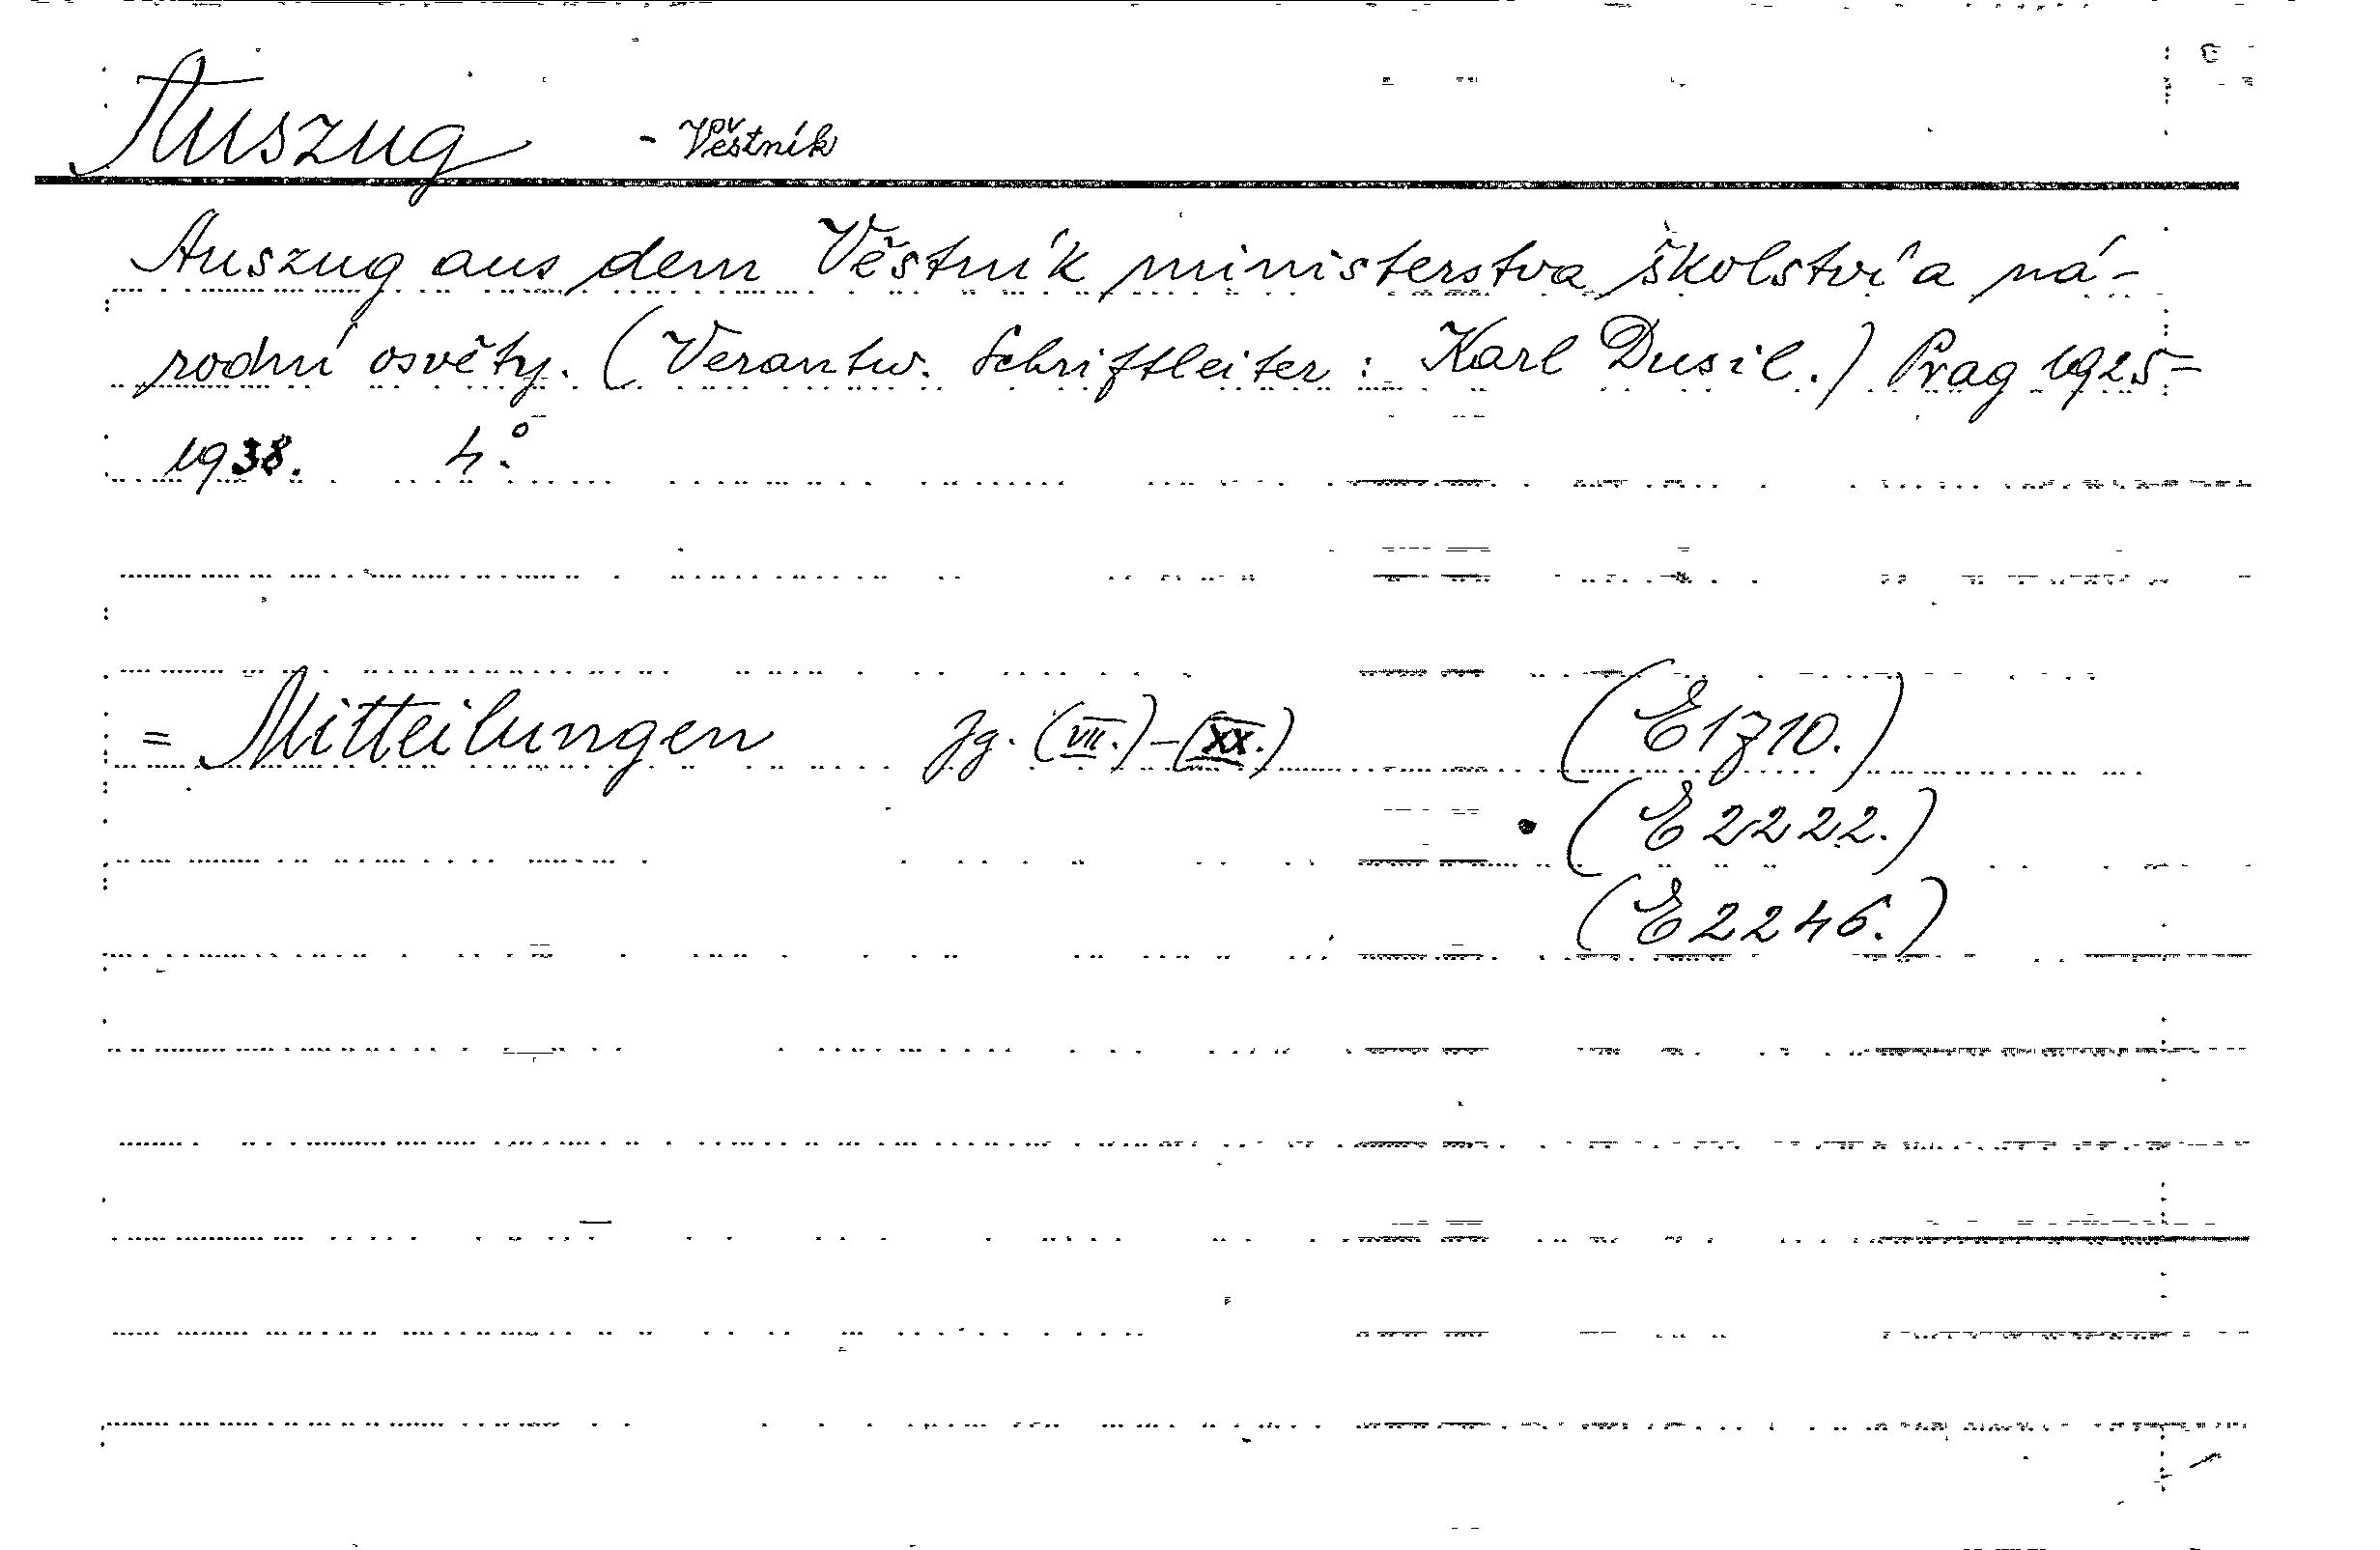 Auszug - Věstník
Auszug aus dem Věstník ministerstva školství a ná-
rodní osvěty. (Verantw. Schriftleiter: Karl Dusil.) Prag 1925-
1938. 4.°
= Mitteilungen Jg. (VII.)-(XX.) (E1710.)
(E2222.)
(E2246.)